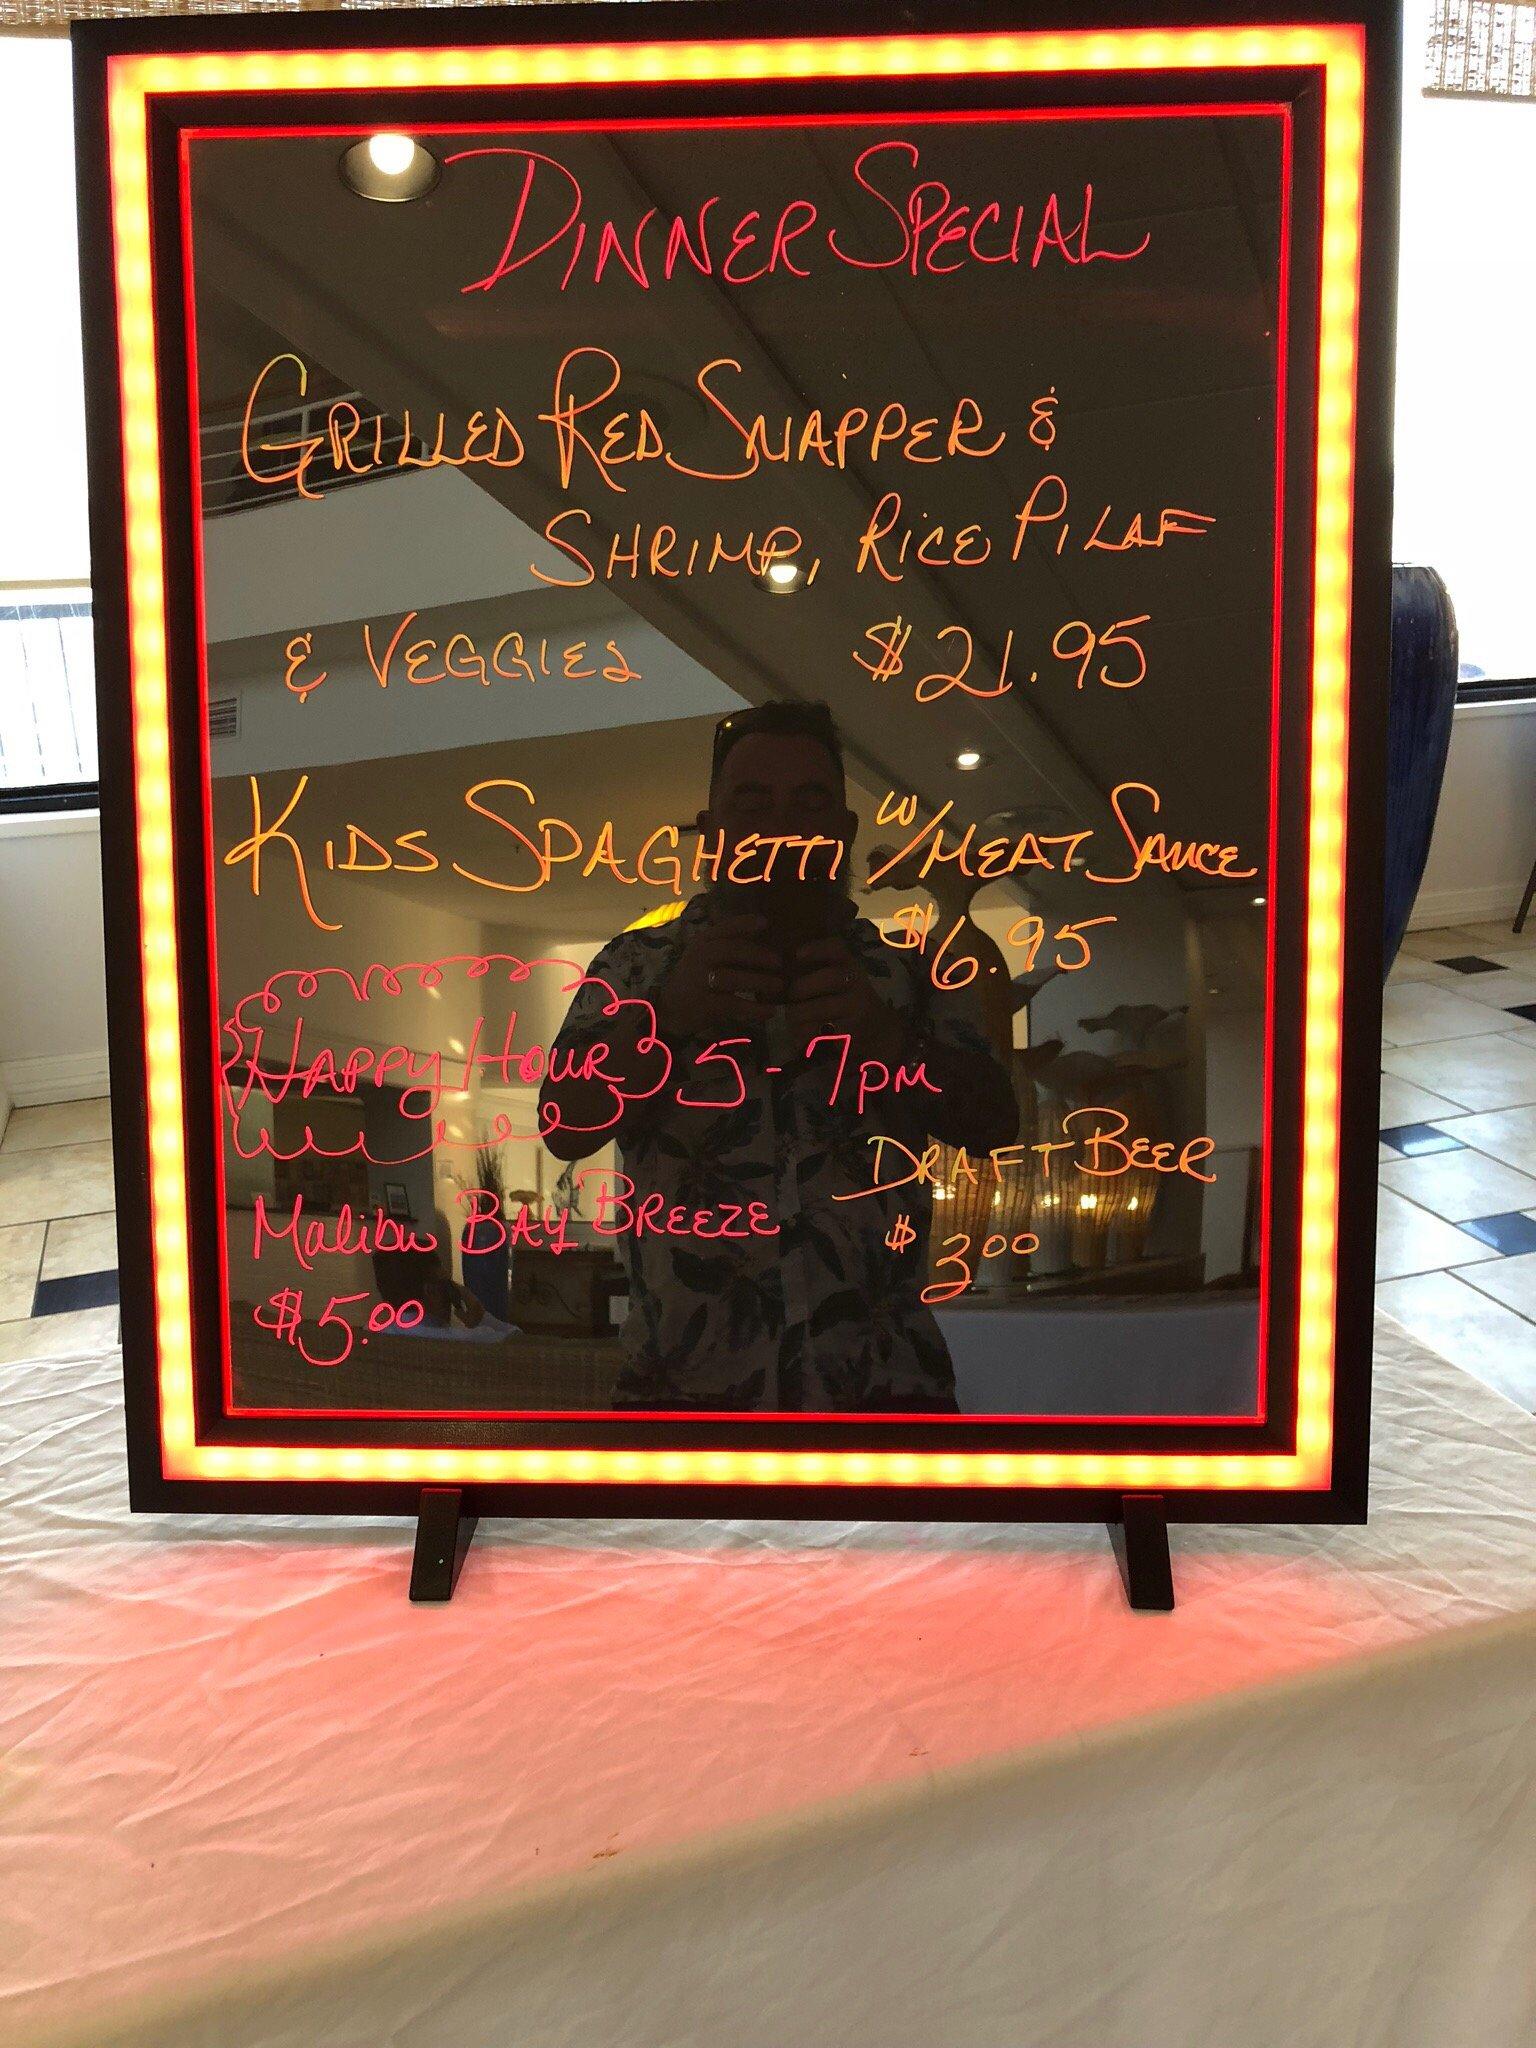 DINNER SPECIAL
GRILLED RED SNAPPER &
SHRIMP, RICE PILAF
& VEGGIES $21.95
KIDS SPAGHETTI W/MEAT SAUCE
$6.95
HAPPY HOUR 5-7PM
DRAFT BEER
Malibu BAY BREEZE
$3.00
$5.00